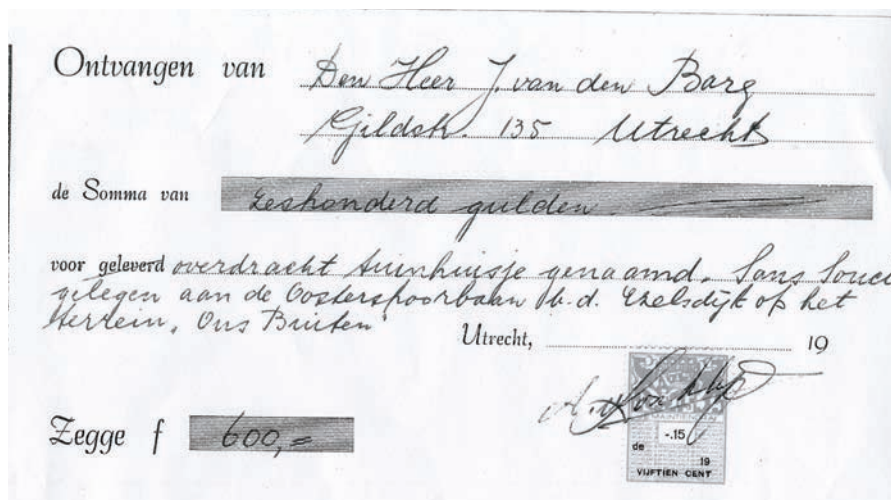 Ontvangen van Den Heer J. van den Barg
Gildstr. 135 Utrecht
de Somma van zeshonderd gulden
voor geleverd overdracht tuinhuisje genaamd „Sans Souci
gelegen aan de Oosterspoorbaan b.d. Ezelsdijk op het
terrein „Ons Buiten"
Utrecht, 19
A.
Zegge f 600,=
-.15
de 19
VIJFTIEN CENT